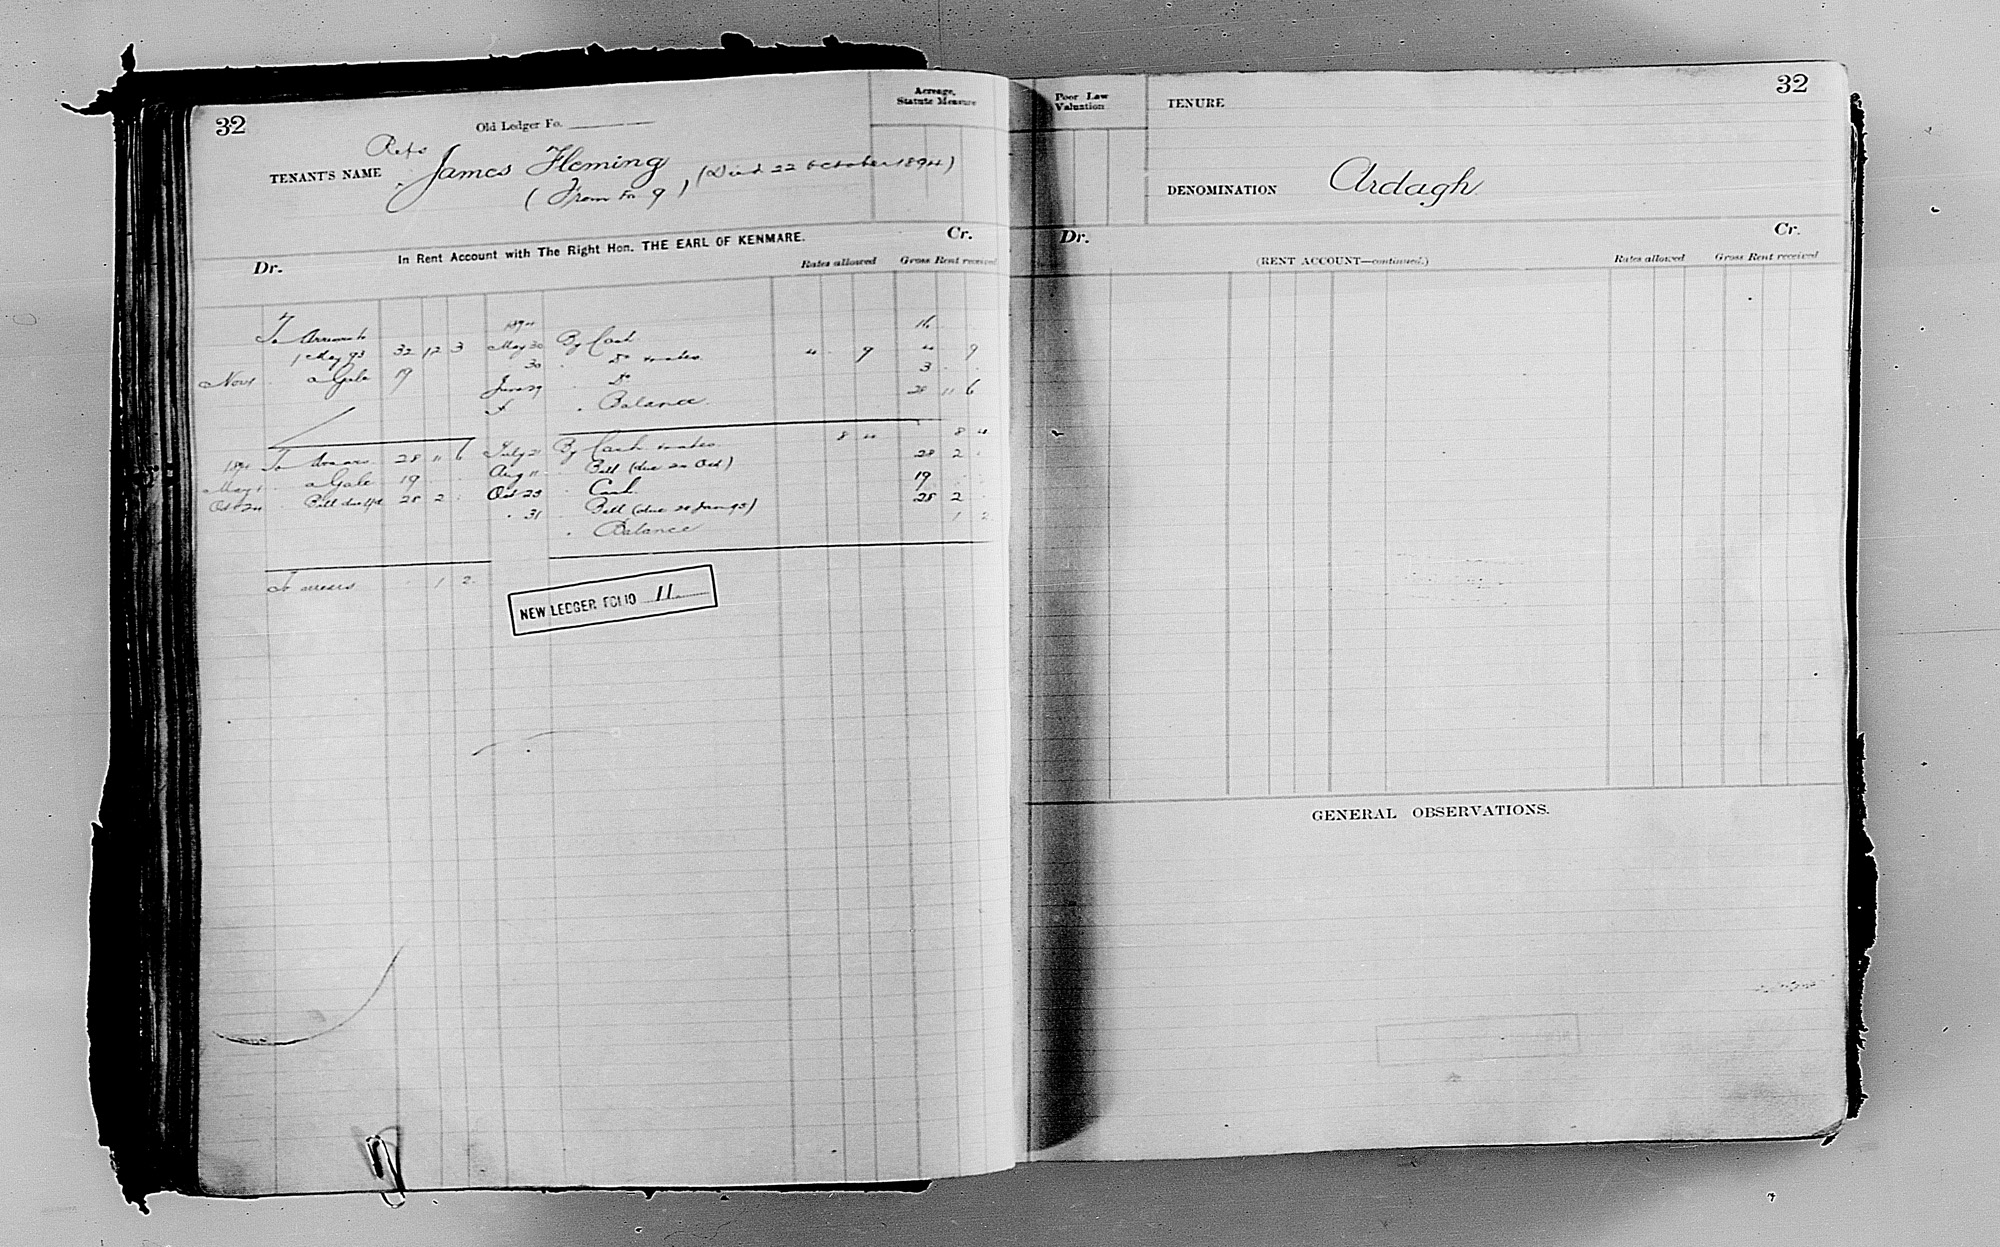 32
Old Ledger Fo.
Acreage,
Statute Measure
Reps
TENANT'S NAME James Fleming (Died 22 October 1894)
(From Fo 9)
In Rent Account with The Right Hon. THE EARL OF KENMARE.
Dr. Cr.
Rates allowed Gross Rent received
1894 16
To Arrears to
1 May 93 32 12 3 May 30 By Cash
30 " Do rates 4 9 4 9
Nov 1 a Gale 19 June 29 " Do 3
" Balance 28 11 6
1894 To Arrears 28 11 6 July 21 By Cash rates 8 4 8 4
May 1 a Gale 19 Aug 11 " Bill (due 24 Oct) 28 2
Oct 24 Bill due 28 2 Oct 23 " Cash 19
" 31 Bill (due 28 Jan 95) 28 2
" Balance 1 2
To arrears 1 2
NEW LEDGER FOLIO 11
32
Poor Law
Valuation
TENURE
DENOMINATION Ardagh
Dr. Cr.
(RENT ACCOUNT—continued.)
Rates allowed Gross Rent received
GENERAL OBSERVATIONS.